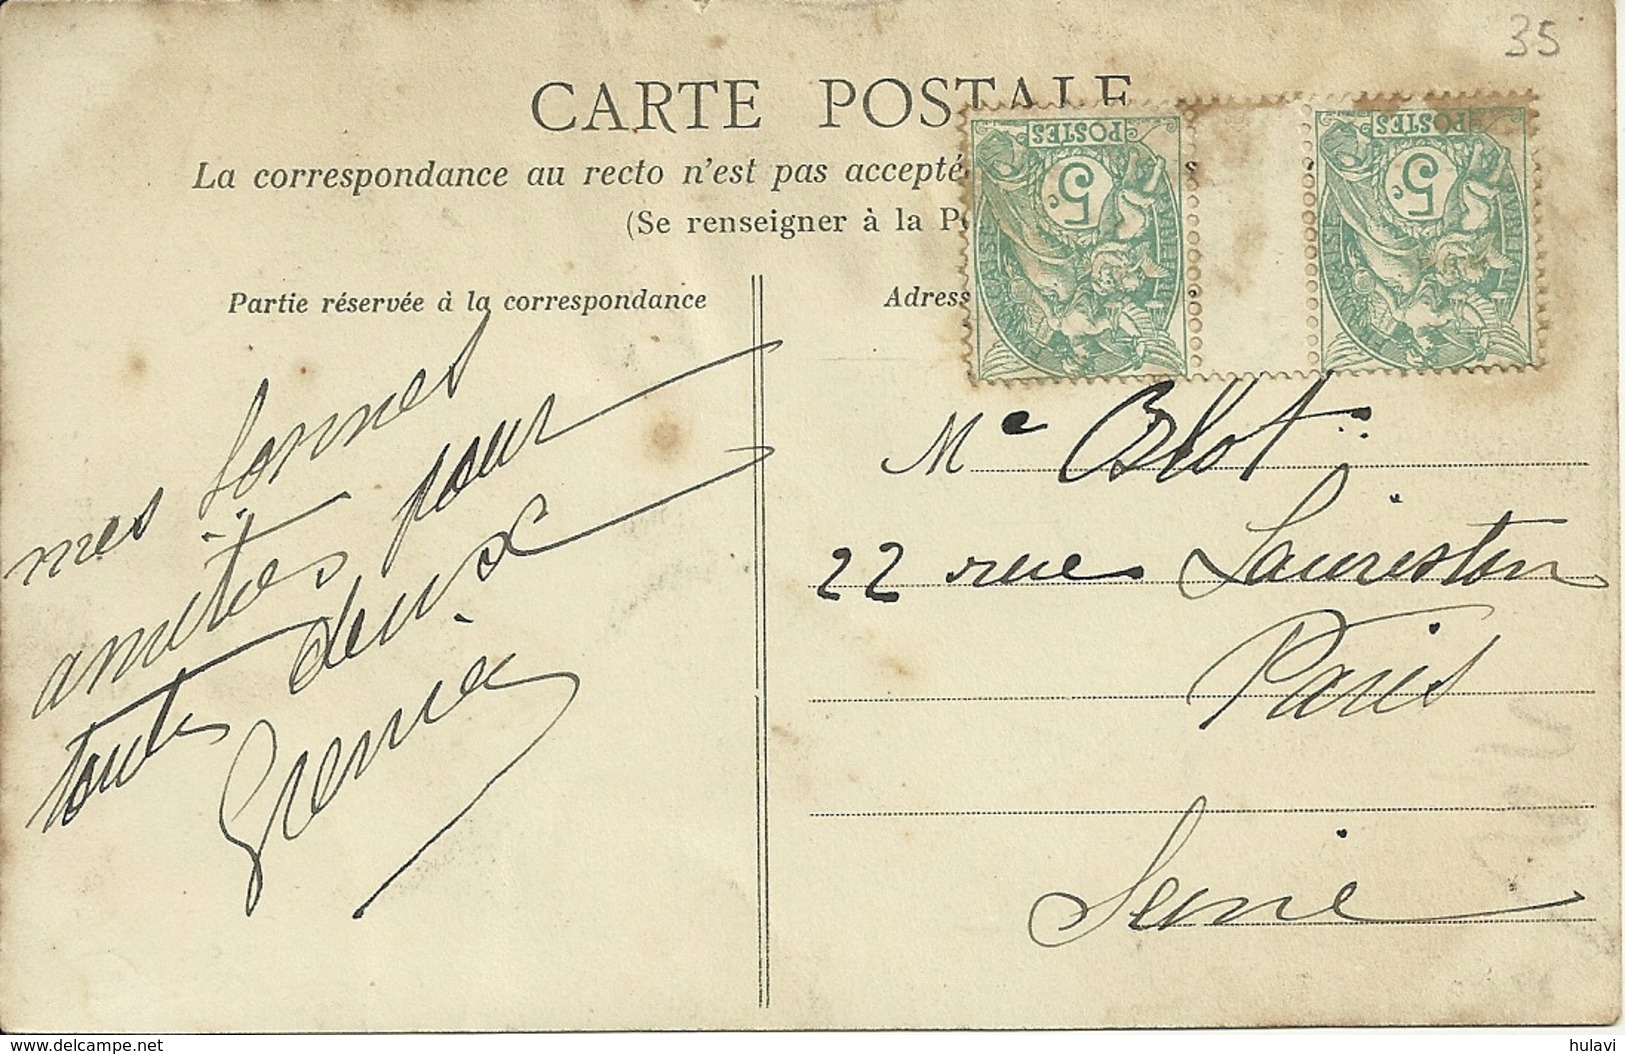 35
CARTE POSTALE
La correspondance au recto n'est pas accepté
(Se renseigner à la P
Partie réservée à la correspondance
Adress
POSTES
5c
POSTES
5c
mes bonnes
amitiés pour
toutes deux
Me Blot
22 rue Lauriston
Paris
Seine
delcampe.net
hulavi